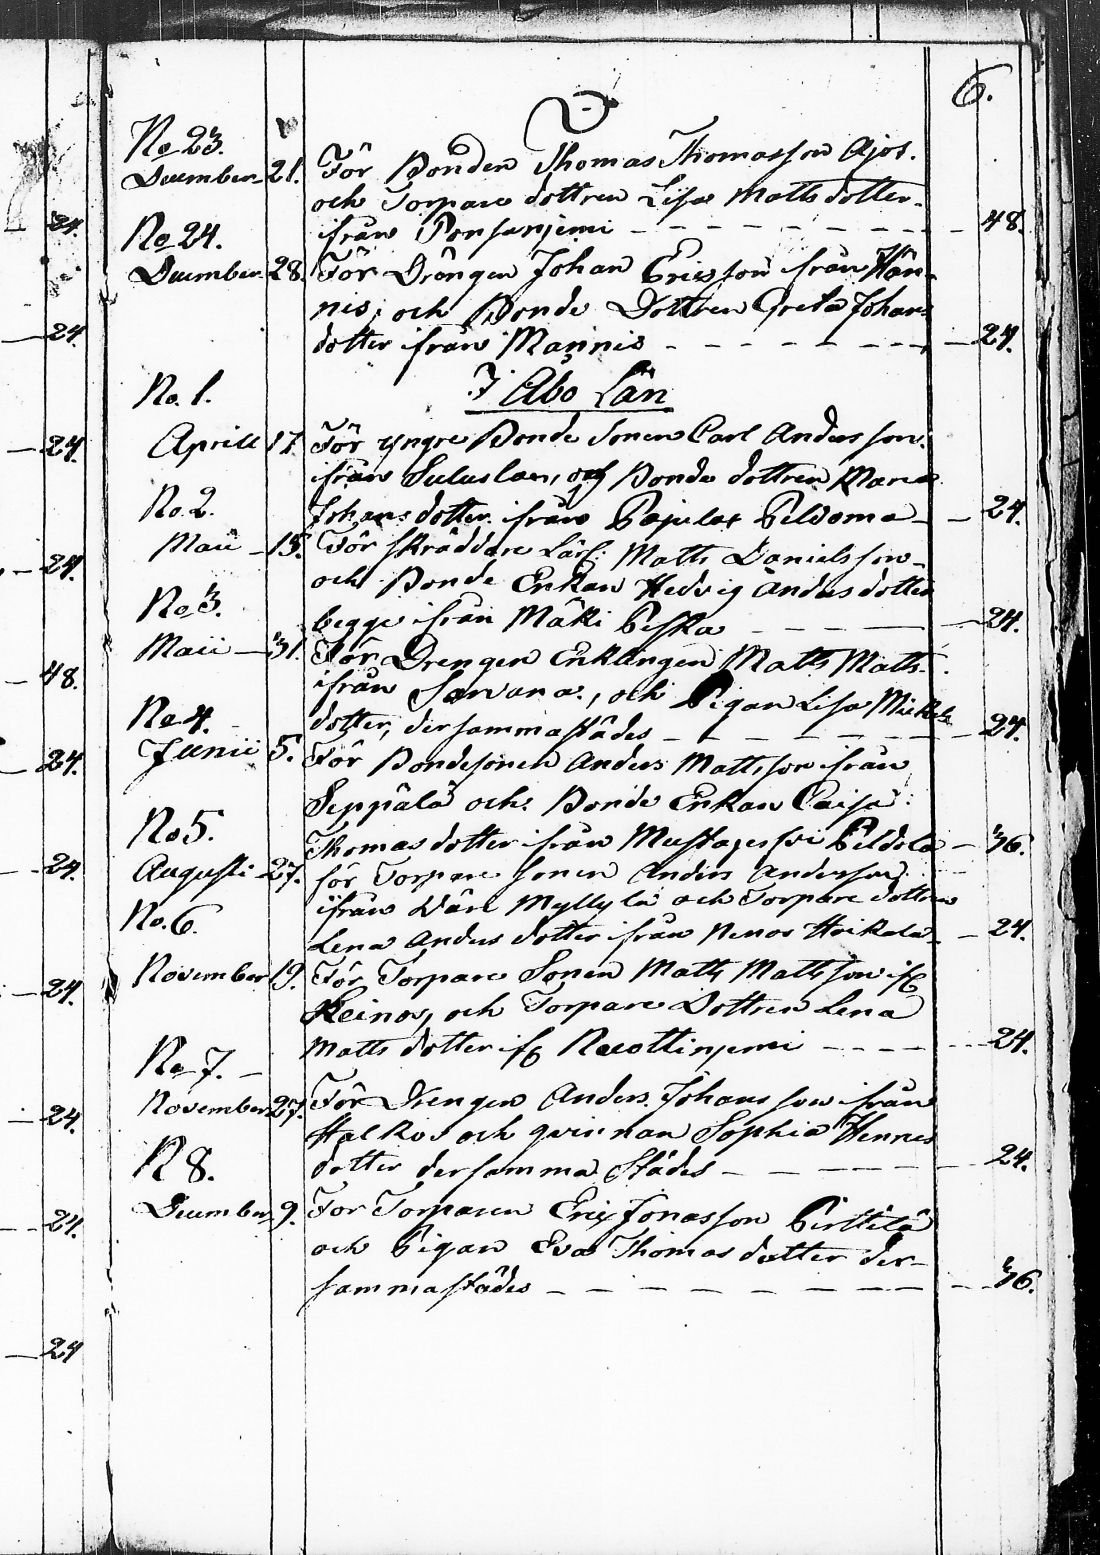 6.
No 23.
December 21. För Bonden Thomas Thomasson Ajos.
och Torpare dottren Lisa Matts dotter
ifrån Ponsanjemi - - - 48.
No 24.
December 28. För Drängen Johan Ericsson ifrån Hän-
nis, och Bonde Dottren Greta Johans
dotter ifrån Mannis - - - 24.
I Åbo Län
No. 1.
Aprill 17. För yngre Bonde Sonen Carl Andersson
ifrån och Bonde dottren Maria
Johans dotter ifrån Pajula Peldoma - - 24.
No. 2.
Maii - 15. För skräddare Lärl: Matts Danielsson
och Bonde Enkan Hedvig Anders dotter
begge ifrån Mäki Peska - - - 24.
No 3.
Maii - 31. För Drengen Enklingen Matts Matts.
ifrån Sarvana, och Pigan Lisa Mickels
dotter, dersammastädes - - - 24.
No 4.
Junii 5. För Bondesonen Anders Mattsson ifrån
Seppälä och Bonde Enkan Caisa
Thomas dotter ifrån Peldola - 36.
No 5.
Augusti 27. för Torpare sonen Anders Andersson
ifrån Wäre Myllylä och Torpare dottren
Lena Anders dotter ifrån Heikala - 24.
No. 6.
November 19. För Torpare Sonen Matts Mattsson if
Keinos, och Torpare Dottren Lena
Matts dotter if - - - 24.
No 7. -
November 27. För Drengen Anders Johansson ifrån
Halkos och qvinnan Sophia Hennes
dotter dersamma städes - - - 24.
N 8.
December 9. För Torparen Eric Jonasson Perttilä
och Pigan Eva Thomas dotter der-
sammastädes - - - 36.
24.
24.
24.
24.
48.
24.
24.
24.
24.
24.
24